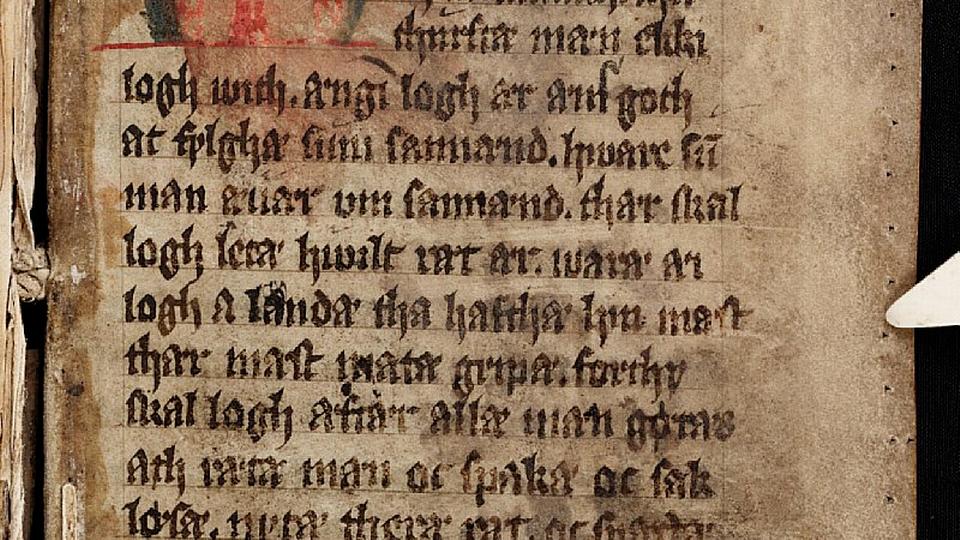 thurftæ mæn ekki
logh with. ængi logh ær ænf goth
at fylghæ sum sannænd. hwaræ sū
mæn æuær um sannænd. thær skal
logh letæ hwilt ræt ær. waræ æi
logh a landæ tha hafthæ hin mæst
thær mæst matæ gripæ. forthy
skal logh æftær allæ mæn gøræs
ath rætæ mæn oc spakæ oc sak
løsæ. nytæ theræ ræt. oc